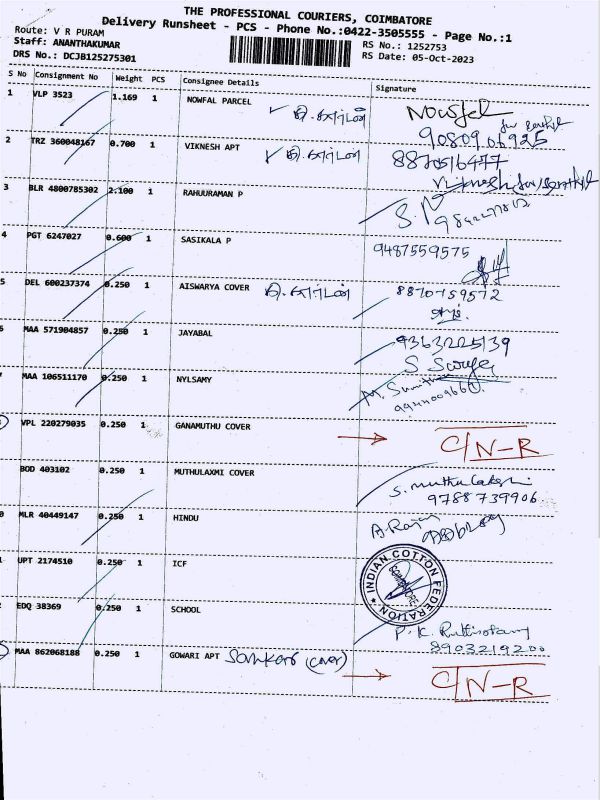 THE PROFESSIONAL COURIERS, COIMBATORE
Delivery Runsheet - PCS - Phone No.:0422-3505555 - Page No.:1
Route: V R PURAM
Staff: ANANTHAKUMAR RS No.: 1252753
DRS No.: DCJB125275301 RS Date: 05-Oct-2023
S No Consignment No Weight PCS Consignee Details Signature
1 VLP 3523 1.169 1 NOWFAL PARCEL ✓ Nowfal
2 TRZ 360048167 0.700 1 VIKNESH APT ✓ 8870516477
3 BLR 4800785302 2.100 1 RAHUURAMAN P
4 PGT 6247027 0.600 1 SASIKALA P 9487559575
5 DEL 600237374 0.250 1 AISWARYA COVER 8870759572
MAA 571904857 0.250 1 JAYABAL 9363225139
S Surya
MAA 106511170 0.250 1 NYLSAMY
VPL 220279035 0.250 1 GANAMUTHU COVER → C/N-R
BOD 403102 0.250 1 MUTHULAXMI COVER S. muthulakshmi
9788739906
MLR 40449147 0.250 1 HINDU
UPT 2174510 0.250 1 ICF INDIAN COTTON FEDERATION
EDQ 38369 0.250 1 SCHOOL
8903219200
MAA 862068188 0.250 1 GOWARI APT (cover) → C/N-R